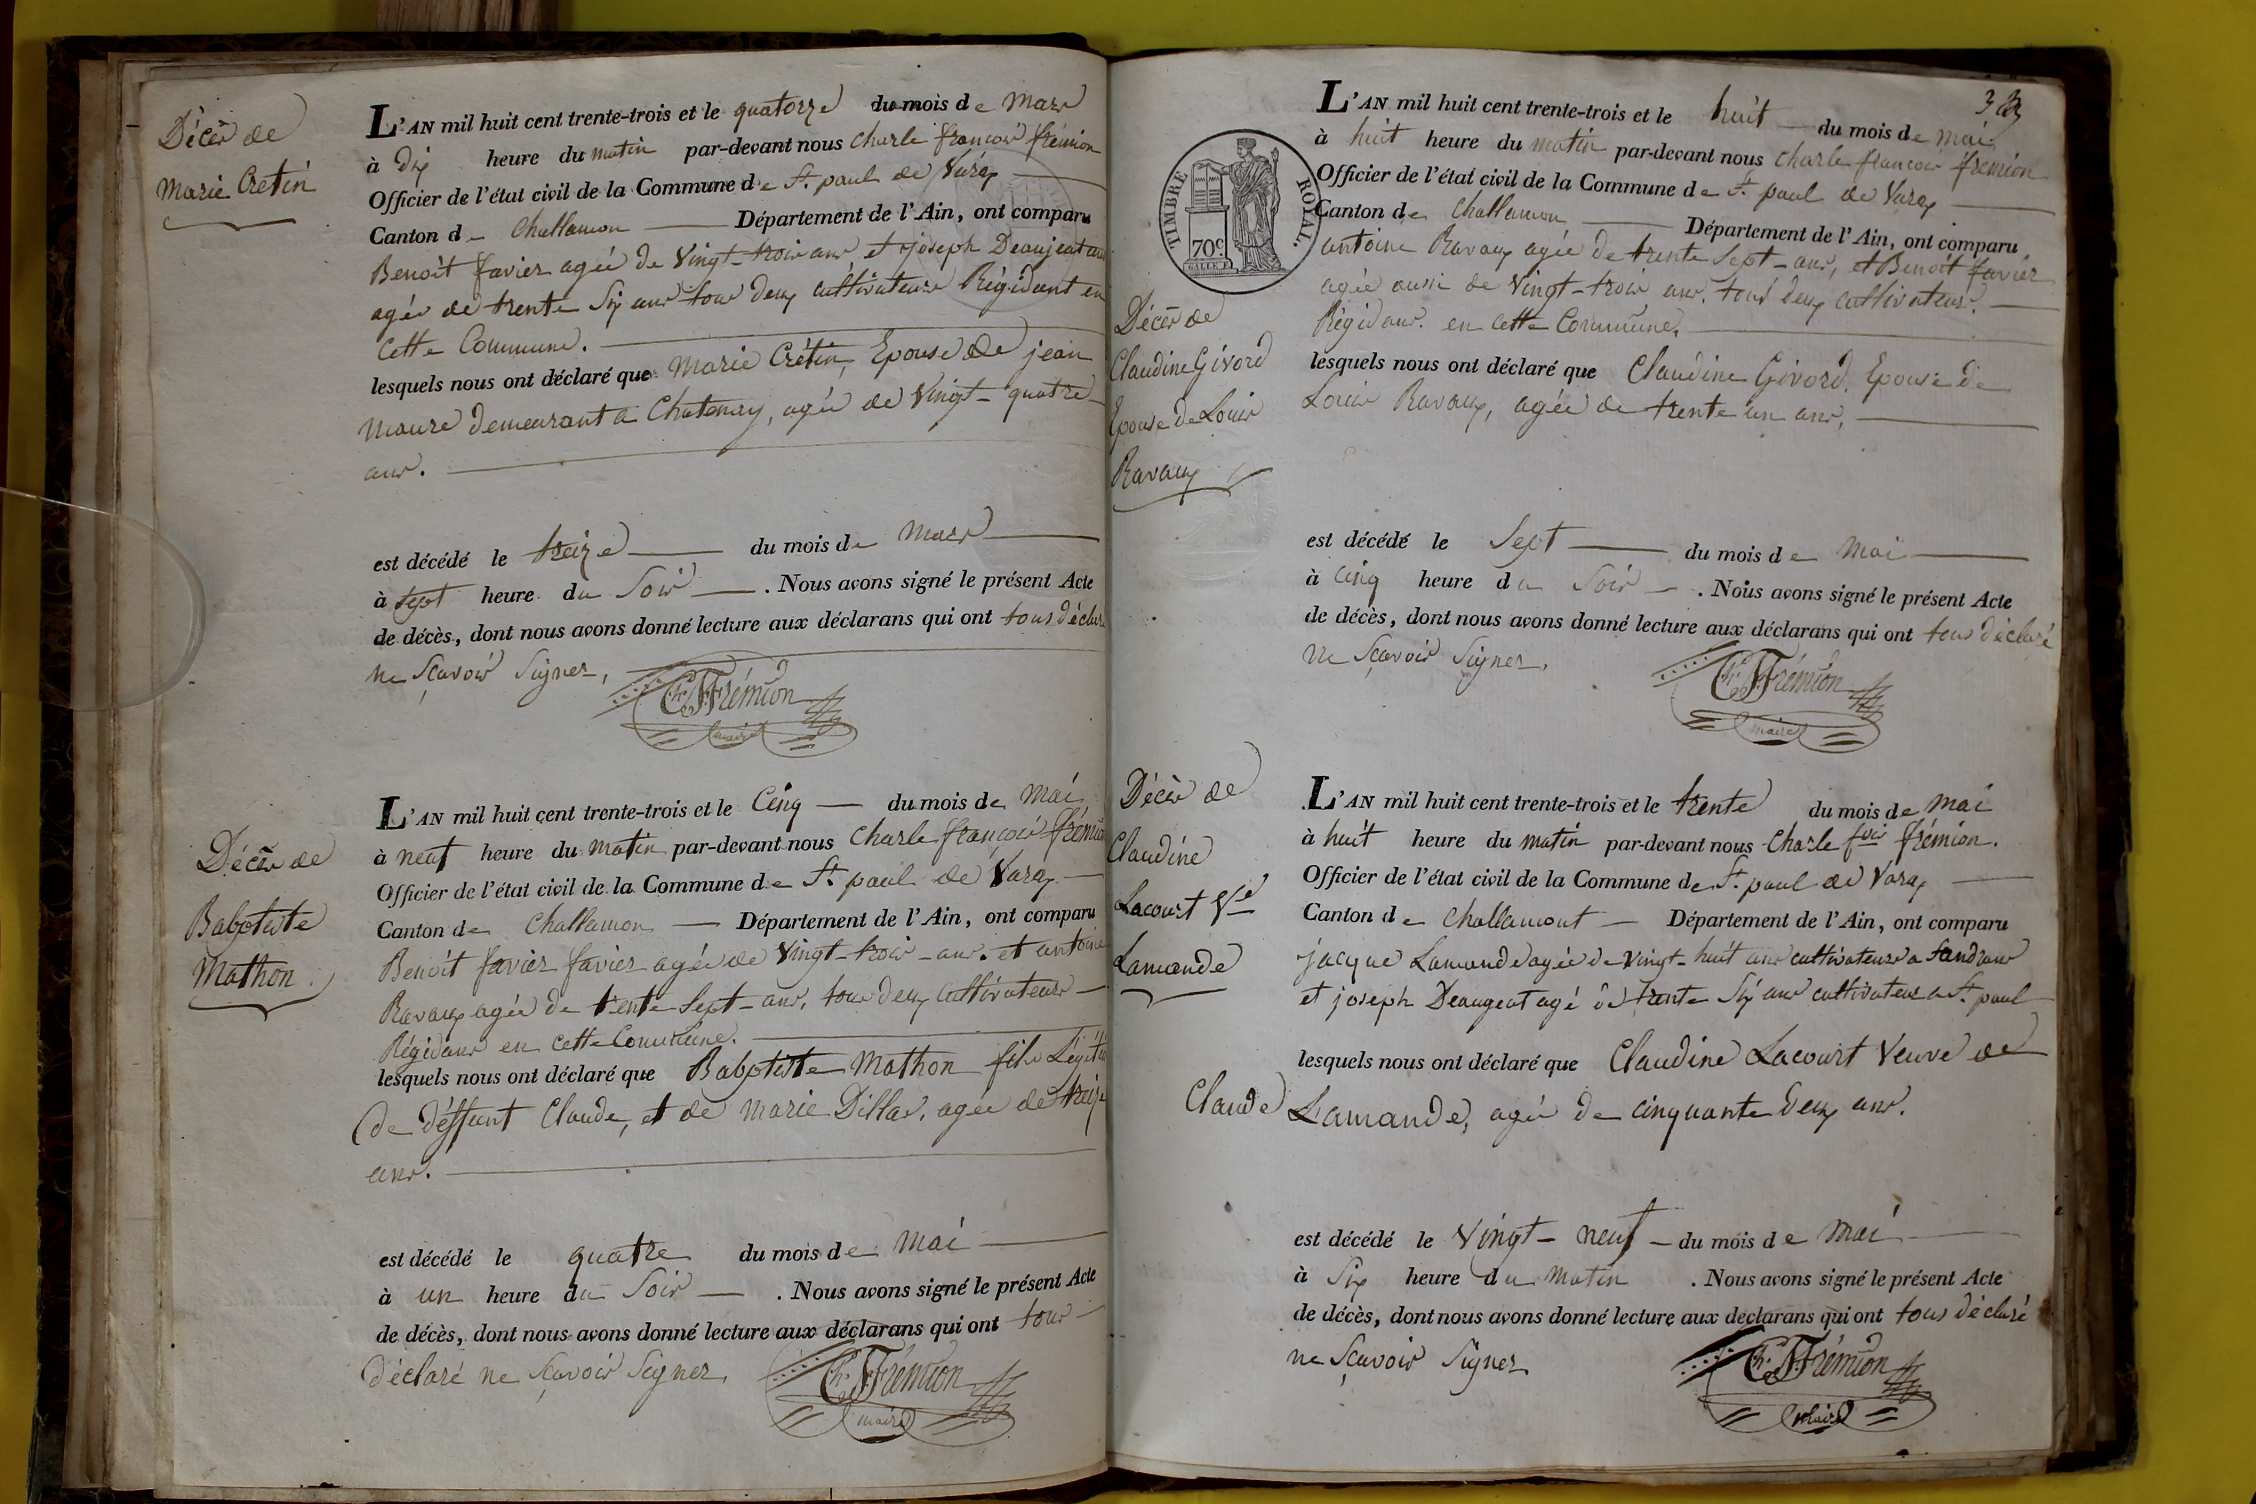 Décès de
Marie Cretin
L'AN mil huit cent trente-trois et le quatorze du mois de Mars
à dix heure du matin par-devant nous Charle françois frémion
Officier de l'état civil de la Commune de St. paul de Varax
Canton de Challamon Département de l'Ain, ont comparu
Benoit favier agée de Vingt-trois ans et joseph Deaujeat aussi
agée de trente Six ans tous deux cultivateurs Régidant en
cette Commune.
lesquels nous ont déclaré que Marie Crétin, Epouse de jean
Maure demeurant a Chatenay, agée de Vingt-quatre
ans.
est décédé le treize du mois de Mars
à sept heure du Soir. Nous avons signé le présent Acte
de décès, dont nous avons donné lecture aux déclarans qui ont tous déclaré
ne Sçavoir Signer,
Ch. F. Frémion
maire
Décès de
Babptiste
Mathon.
L'AN mil huit cent trente-trois et le Cinq du mois de Mai,
à neuf heure du matin par-devant nous Charle françois frémion
Officier de l'état civil de la Commune de St. paul de Varax
Canton de Challamon Département de l'Ain, ont comparu
Benoit favier favier agée de Vingt-trois-ans. et antoine
Ravaux agée de trente Sept-ans, tous deux cultivateurs
Régidans en cette Commune.
lesquels nous ont déclaré que Babptiste Mathon fils Légitime
de déffunt Claude, et de Marie Dillas, agée de treize
ans.
est décédé le quatre du mois de Mai
à un heure du Soir. Nous avons signé le présent Acte
de décès, dont nous avons donné lecture aux déclarans qui ont tous
déclaré ne Sçavoir Signer,
Ch. F. Frémion
maire
TIMBRE ROYAL.
70c.
Décès de
Claudine Givord
Epouse de Louis
Ravaux
L'AN mil huit cent trente-trois et le huit du mois de Mai,
à huit heure du matin par-devant nous Charle francois frémion
Officier de l'état civil de la Commune de St. paul de Varax
Canton de Challamon Département de l'Ain, ont comparu
antoine Ravaux agée de trente Sept-ans, et Benoit favier
agée aussi de Vingt-trois ans. tous deux cultivateurs.
Régidans. en cette Commune,
lesquels nous ont déclaré que Claudine Givord, Epouse de
Louis Ravaux, agée de trente un ans,
est décédé le Sept du mois de Mai
à cinq heure du Soir. Nous avons signé le présent Acte
de décès, dont nous avons donné lecture aux déclarans qui ont tous déclaré
ne Sçavoir Signer,
Ch. F. Frémion
maire
Décès de
Claudine
Lacourt Ve
Lamande
L'AN mil huit cent trente-trois et le trente du mois de Mai
à huit heure du matin par-devant nous Charle fcois frémion.
Officier de l'état civil de la Commune de St. paul de Varax
Canton de Challamont Département de l'Ain, ont comparu
jacque Lamande agée de Vingt-huit ans cultivateurs a Sandrans
et joseph Deaugeat agé de trente Six ans cultivateur a St. paul
lesquels nous ont déclaré que Claudine Lacourt Veuve de
Claude Lamande, agée de cinquante deux ans.
est décédé le Vingt-neuf du mois de Mai
à Six heure du Matin. Nous avons signé le présent Acte
de décès, dont nous avons donné lecture aux déclarans qui ont tous déclaré
ne Sçavoir Signer
Ch. F. Frémion
Maire